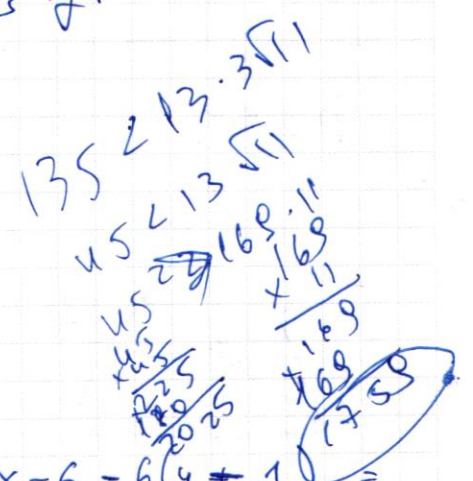 135 < 13 · 3√11
45 < 13 √11
45 169 · 11
45
×45
225
180
2025
169
× 11
169
+169
1759